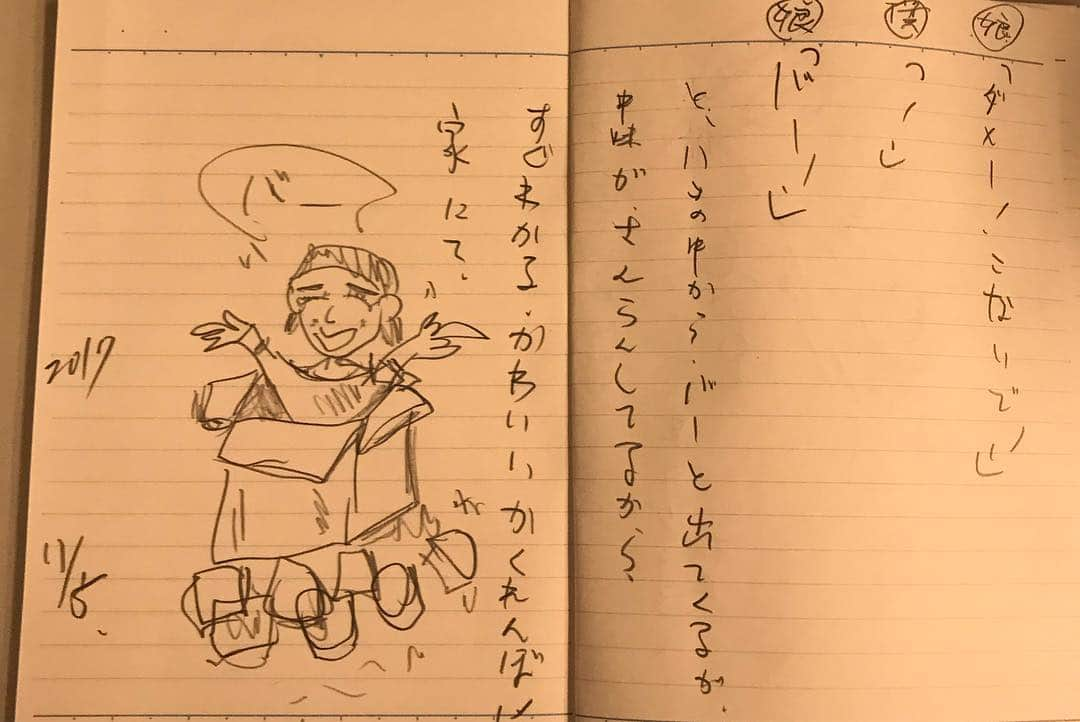 娘「ダメー！こないで！」
僕「！」
娘「バー！」
と、ハコの中から、バーと出てくるが、
中味が、さんらんしてるから、
すぐわかる、かわいいかくれんぼ
家にて、
バー
2017
11/5